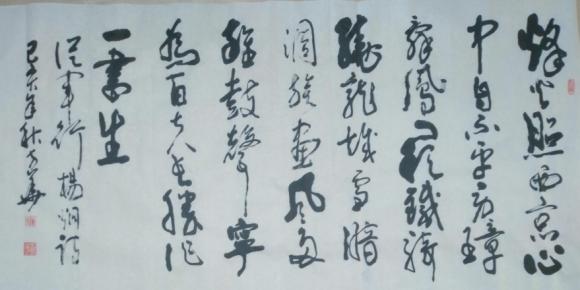 烽火照西京心
中自不平牙璋
辭鳳闕鐵騎
繞龍城雪暗
凋旗畫風多
雜鼓聲寧
為百夫長勝作
一書生
從軍行楊炯詩
年秋